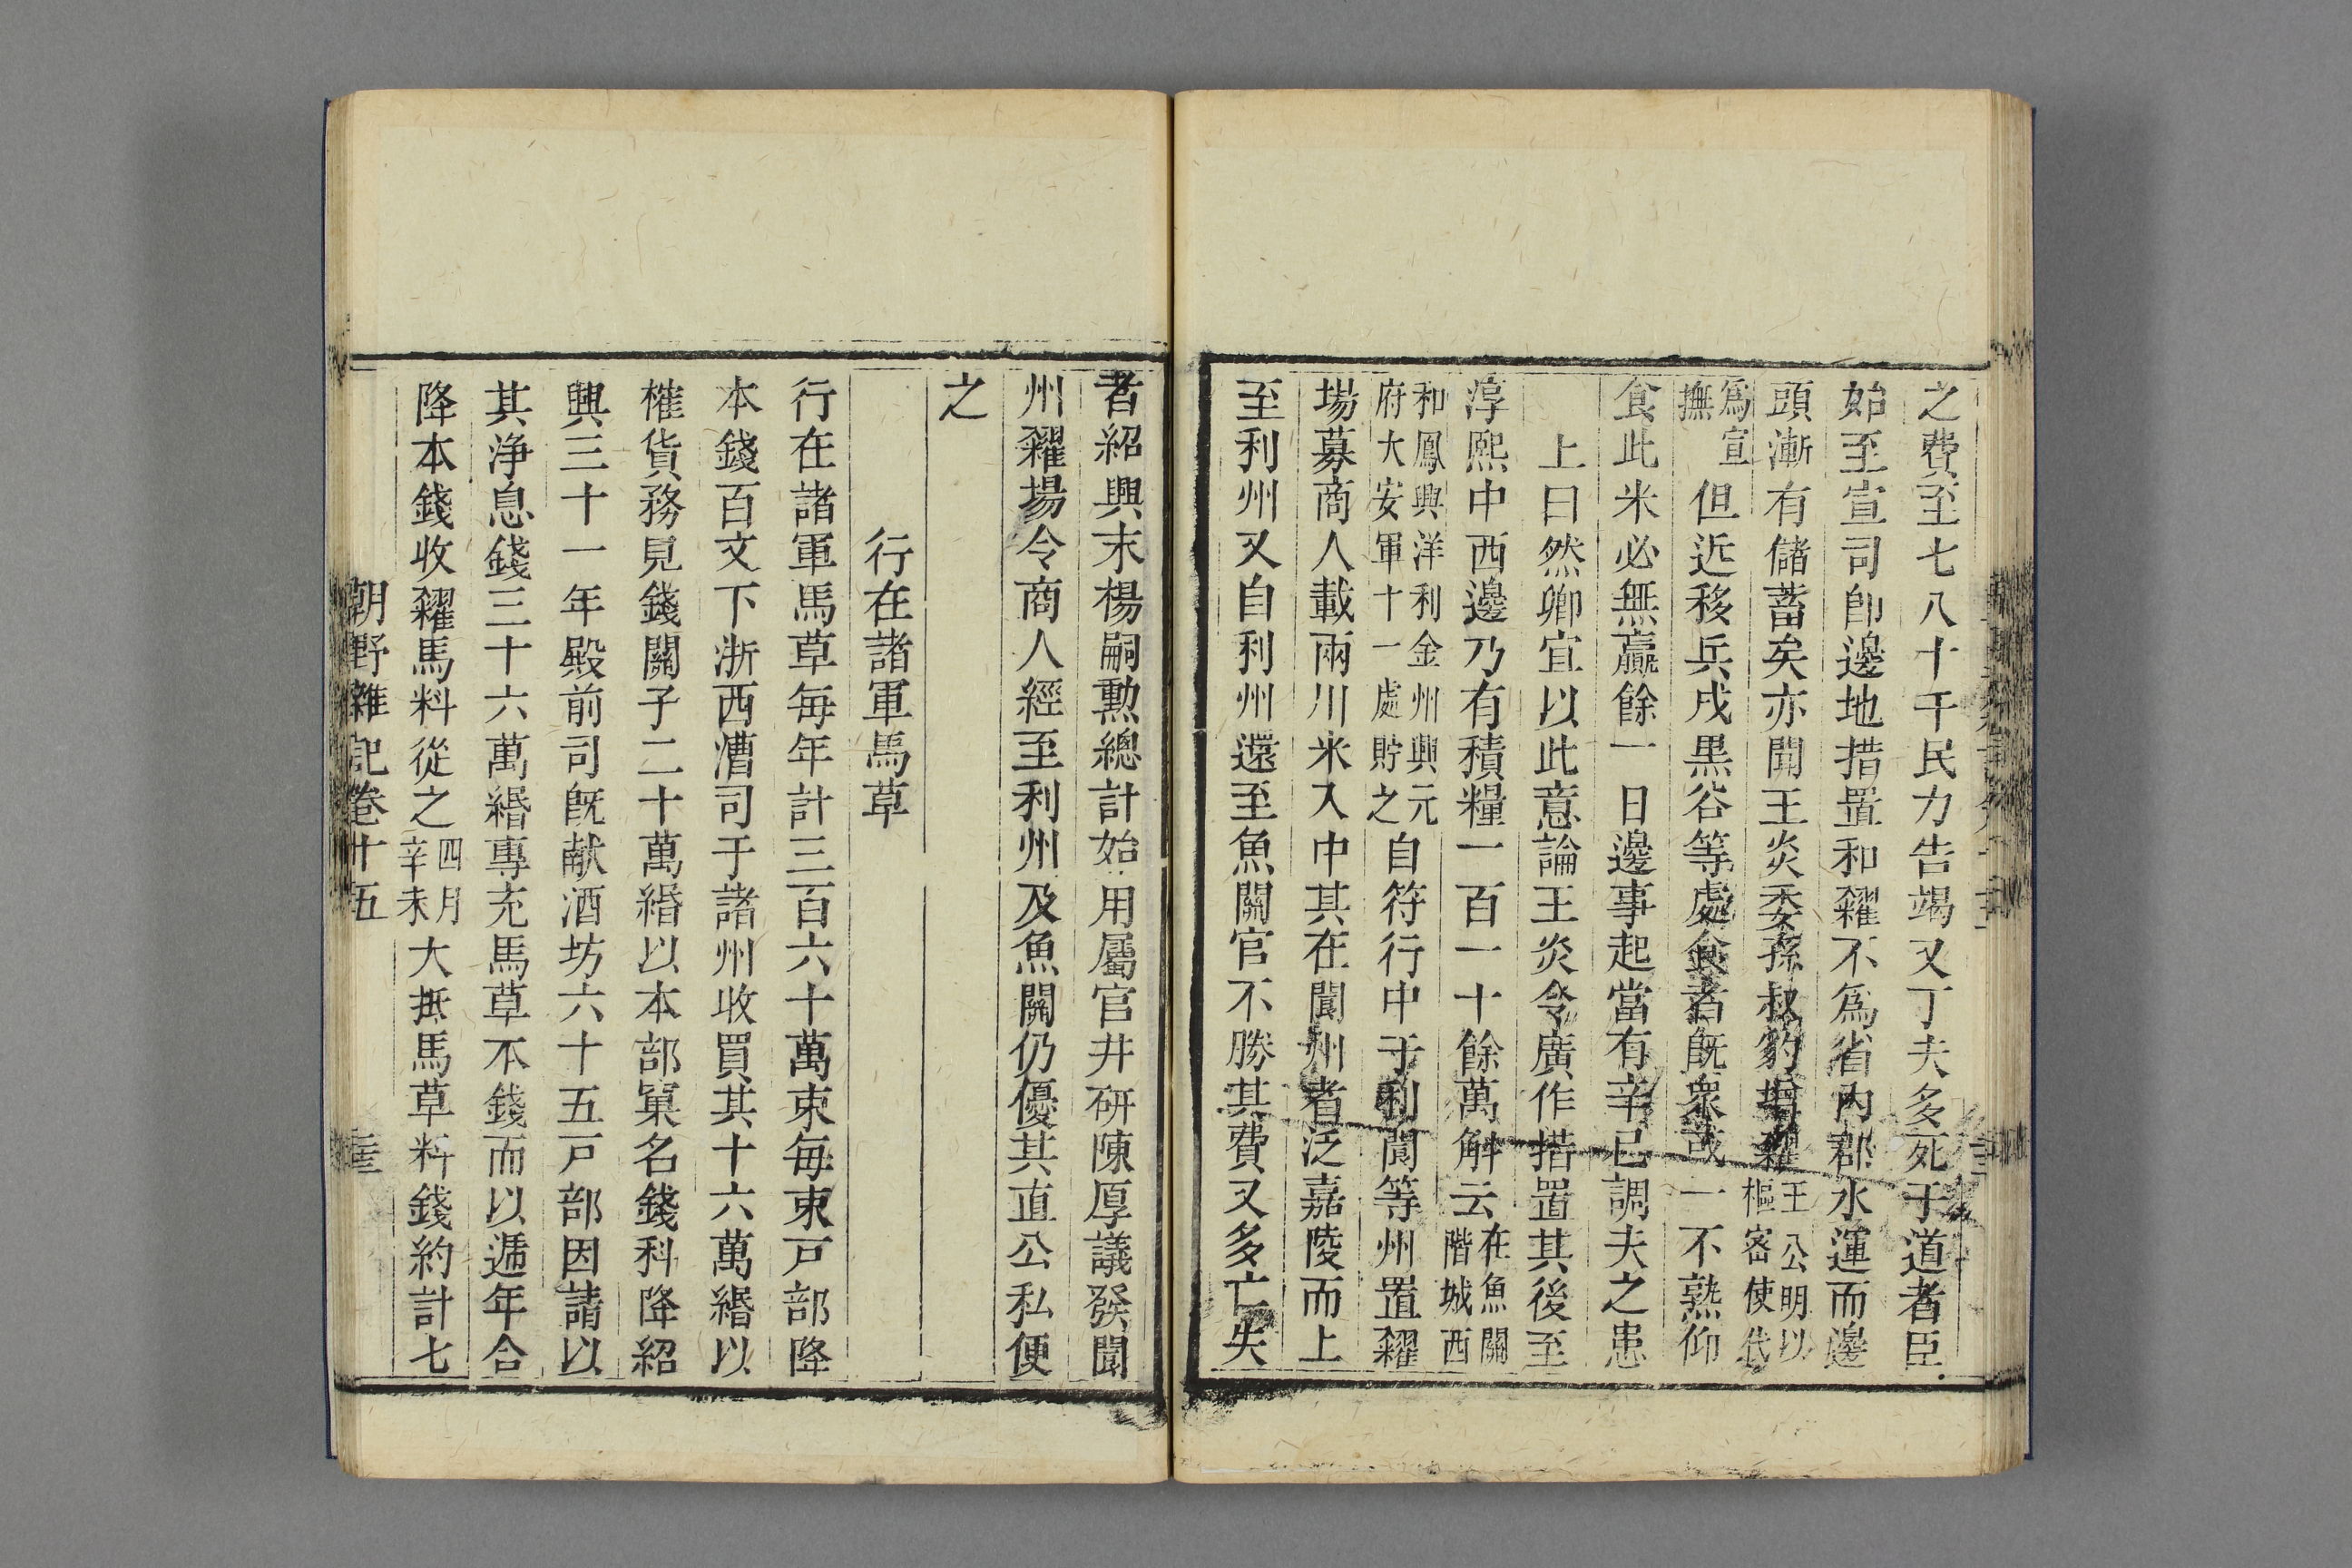 之費至七八十千民力告竭又丁夫多死于道者臣
始至宣司卽邊地措置和糴不爲省內郡水運而邊
頭漸有儲蓄矣亦聞王炎委孫叔豹增糴王公明以樞密使代
爲宣撫但近移兵戍黒谷等處食者既衆或一不熟仰
食此米必無贏餘一日邊事起當有辛巳調夫之患
上曰然卿宜以此意論王炎令廣作措置其後至
淳熙中西邊乃有積糧一百一十餘萬斛云在魚關階城西
和鳳興洋利金州興元府大安軍十一處貯之自符行中于利閬等州置糴
場募商人載兩川米入中其在閬州者泛嘉陵而上
至利州又自利州還至魚關官不勝其費又多亡失
者紹興末楊嗣勲總計始用屬官井研陳厚議發閬
州糴場令商人經至利州及魚關仍優其直公私便
之
行在諸軍馬草
行在諸軍馬草每年計三百六十萬束每束戸部降
本錢百文下浙西漕司于諸州收買其十六萬緡以
榷貨務見錢關子二十萬緡以本部窠名錢科降紹
興三十一年殿前司既献酒坊六十五戸部因請以
其净息錢三十六萬緡專充馬草本錢而以遞年合
降本錢收糴馬料從之四月辛未大抵馬草料錢約計七
朝野雜記卷十五